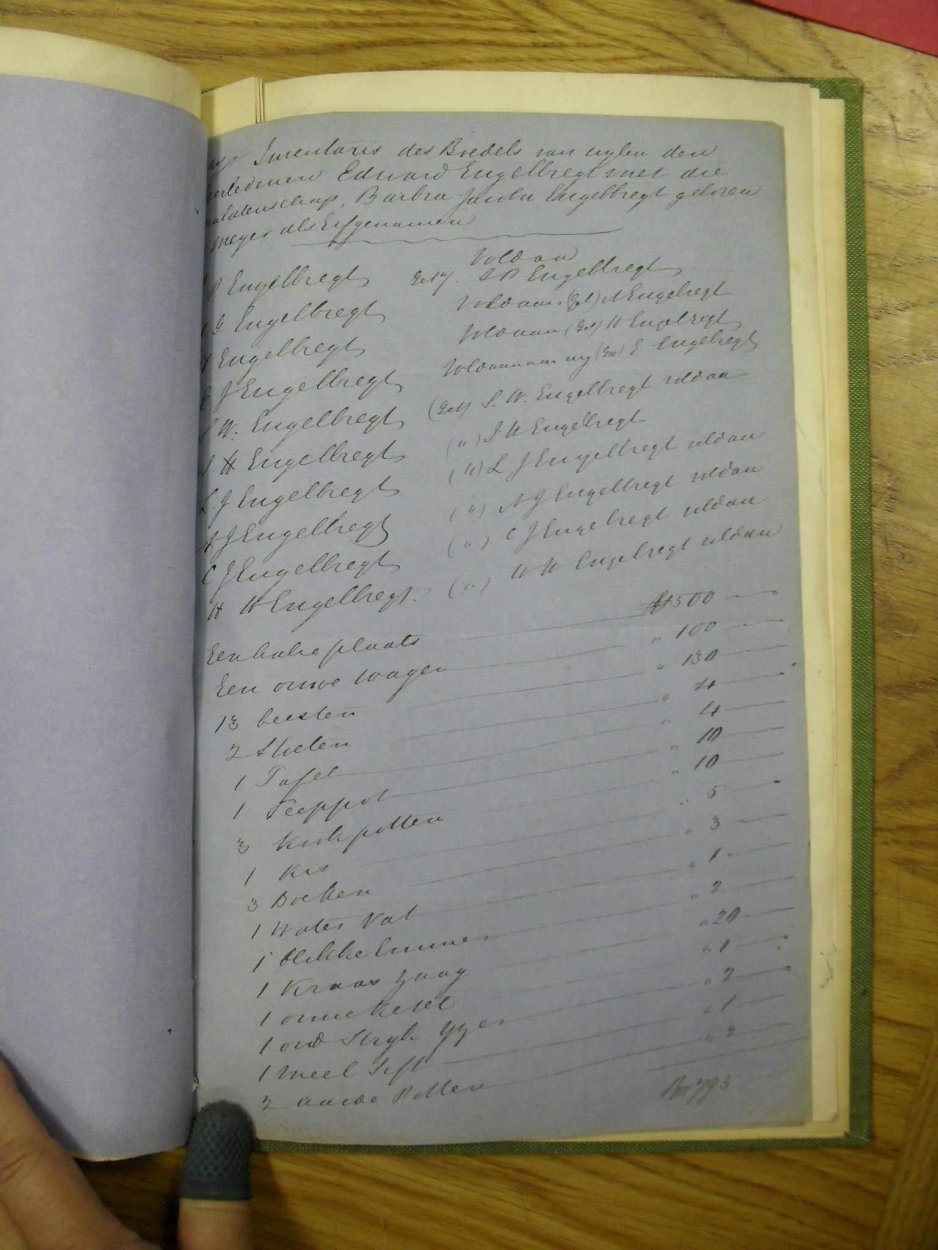 Inventaris des Boedels van wylen den
Edward Engelbregt met die
Barbra Jacoba Engelbregt geboren
Meyer als Erfgenamen
Voldaan
P Engelbregt Get. J P Engelbregt
J Engelbregt Voldaan (Get) A Engelbregt
Engelbregt Voldaan (Get) H Engelbregt
J Engelbregt Voldaan aan my (Get) E Engelbregt
W. Engelbregt (Get) S. W. Engelbregt voldaan
H Engelbregt (") J H Engelbregt
L J Engelbregt (") L J Engelbregt voldaan
A J Engelbregt (") A J Engelbregt voldaan
C J Engelbregt (") C J Engelbregt voldaan
H H Engelbregt. (") H H Engelbregt voldaan
Een halve plaats 500
Een ouwe wagen " 100
13 beesten " 130
2 Stoelen " 4
1 Tafel " 4
1 Teeppot " 10
3 Kookpotten " 10
1 Kis " 5
3 Boeken " 3
1 Water Vat " 1
1 blikke Emmer " 2
1 Kraan zaag " 20
1 ouwe ketel " 1
1 oud Stryk yzer " 2
1 meel Sift " 1
2 aarde Potten " 2
793